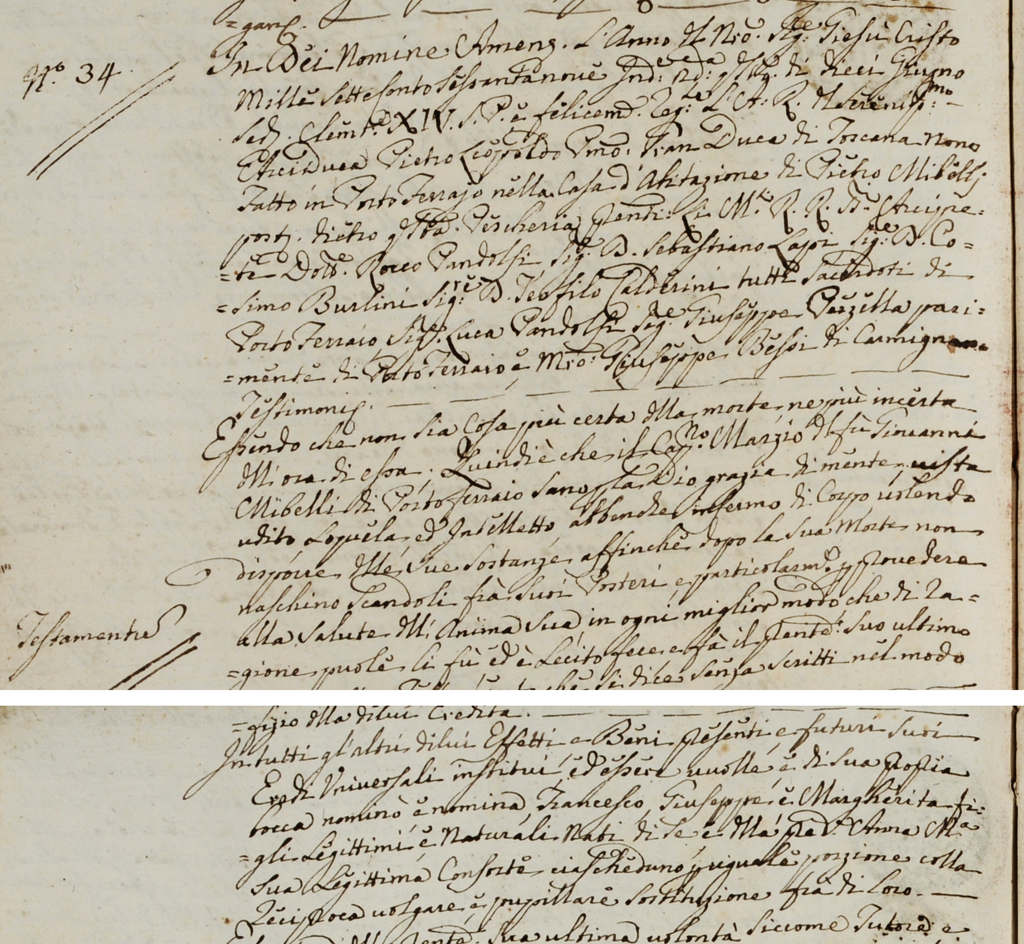 =garij.
N.° 34.
In Dei Nomine Amen. L'Anno del N̄ro: Sig.re Giesù Cristo
Mille Settecento Sessantanove Ind.e 2.da q.sto dì dieci Giugno
Sed. Clem.te XIV. S. P. e felicem.te Reg.te L'A. R. del Sereniss.mo
Arciduca Pietro Leopoldo P̄mo. Gran Duca di Toscana Nono
Fatto in Porto Ferrajo nella Casa d'Abitazione di Pietro Mibelli
posta dietro q.sta Pescheria p̄senti: Li M.to R. R. SS.ri Arcipre=
=te Dott.e Rocco Pandolfi Sig.re D. Sebastiano Lapi Sig.re D. Co=
=simo Burlini Sig.re D. Teofilo Calderini tutti Sacerdoti di
Porto Ferraio, Sig.re Luca Pandolfi Sig.re Giuseppe Perzilla pari=
=mente di Porto Ferraio e M̄ro: Giuseppe Bessi di Carmignano
Testimonij.
Essendo che non sia Cosa più certa della morte, ne più incerta
dell'ora di essa. Quindi è che il Cap.no Marzio del fù Giovanni
Mibelli di Porto Ferraio Sano p̱ la Dio grazia di mente, vista
udito Loquela, ed Intelletto abbenche infermo di Corpo volend=
disporre delle sue Sostanze affinchè dopo la sua Morte non
naschino Scandoli frà suoi Posteri, e particolarm.te p̱ provedere
Testamentu
alla Salute dell'Anima Sua, in ogni miglior modo che di Ra=
=gione puole, li fù ed è Lecito fece e fà il p̄sente suo ultimo
che si dice senza scritti nel modo
=fizio della di lui Eredita.
In tutti gl'altri di lui Effetti, e Beni p̄senti, e futuri suoi
Eredi Universali instituì, ed essere vuolle, e di sua propria
bocca nominò e nomina Francesco, Giuseppe, e Margherita fi=
=gli Legittimi, e Naturali Nati di Se e della p̄ed.a Anna M.a
Sua Legittima Consorte ciascheduno p̱ uguale porzione colla
Reciproca volgare, e pupillare sostituzione frà di loro.
sua ultima volontà siccome Tutore e